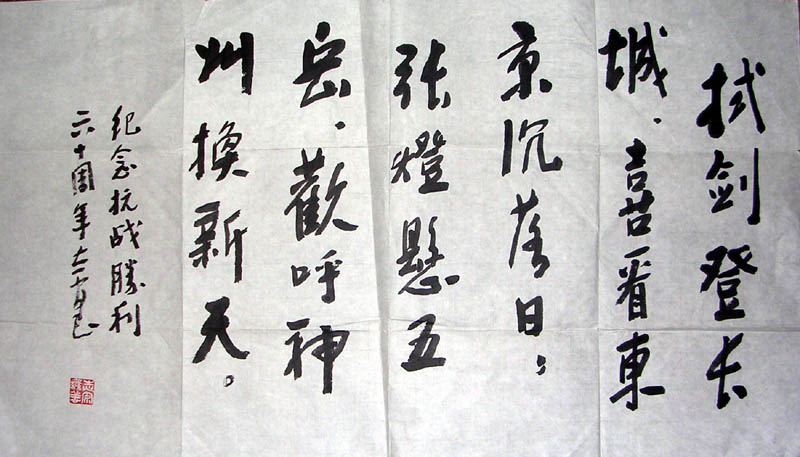 拭剑登长
城．喜看東
京沉落日；
张燈懸五
岳．歡呼神
州換新天。
纪念抗战勝利
六十周年